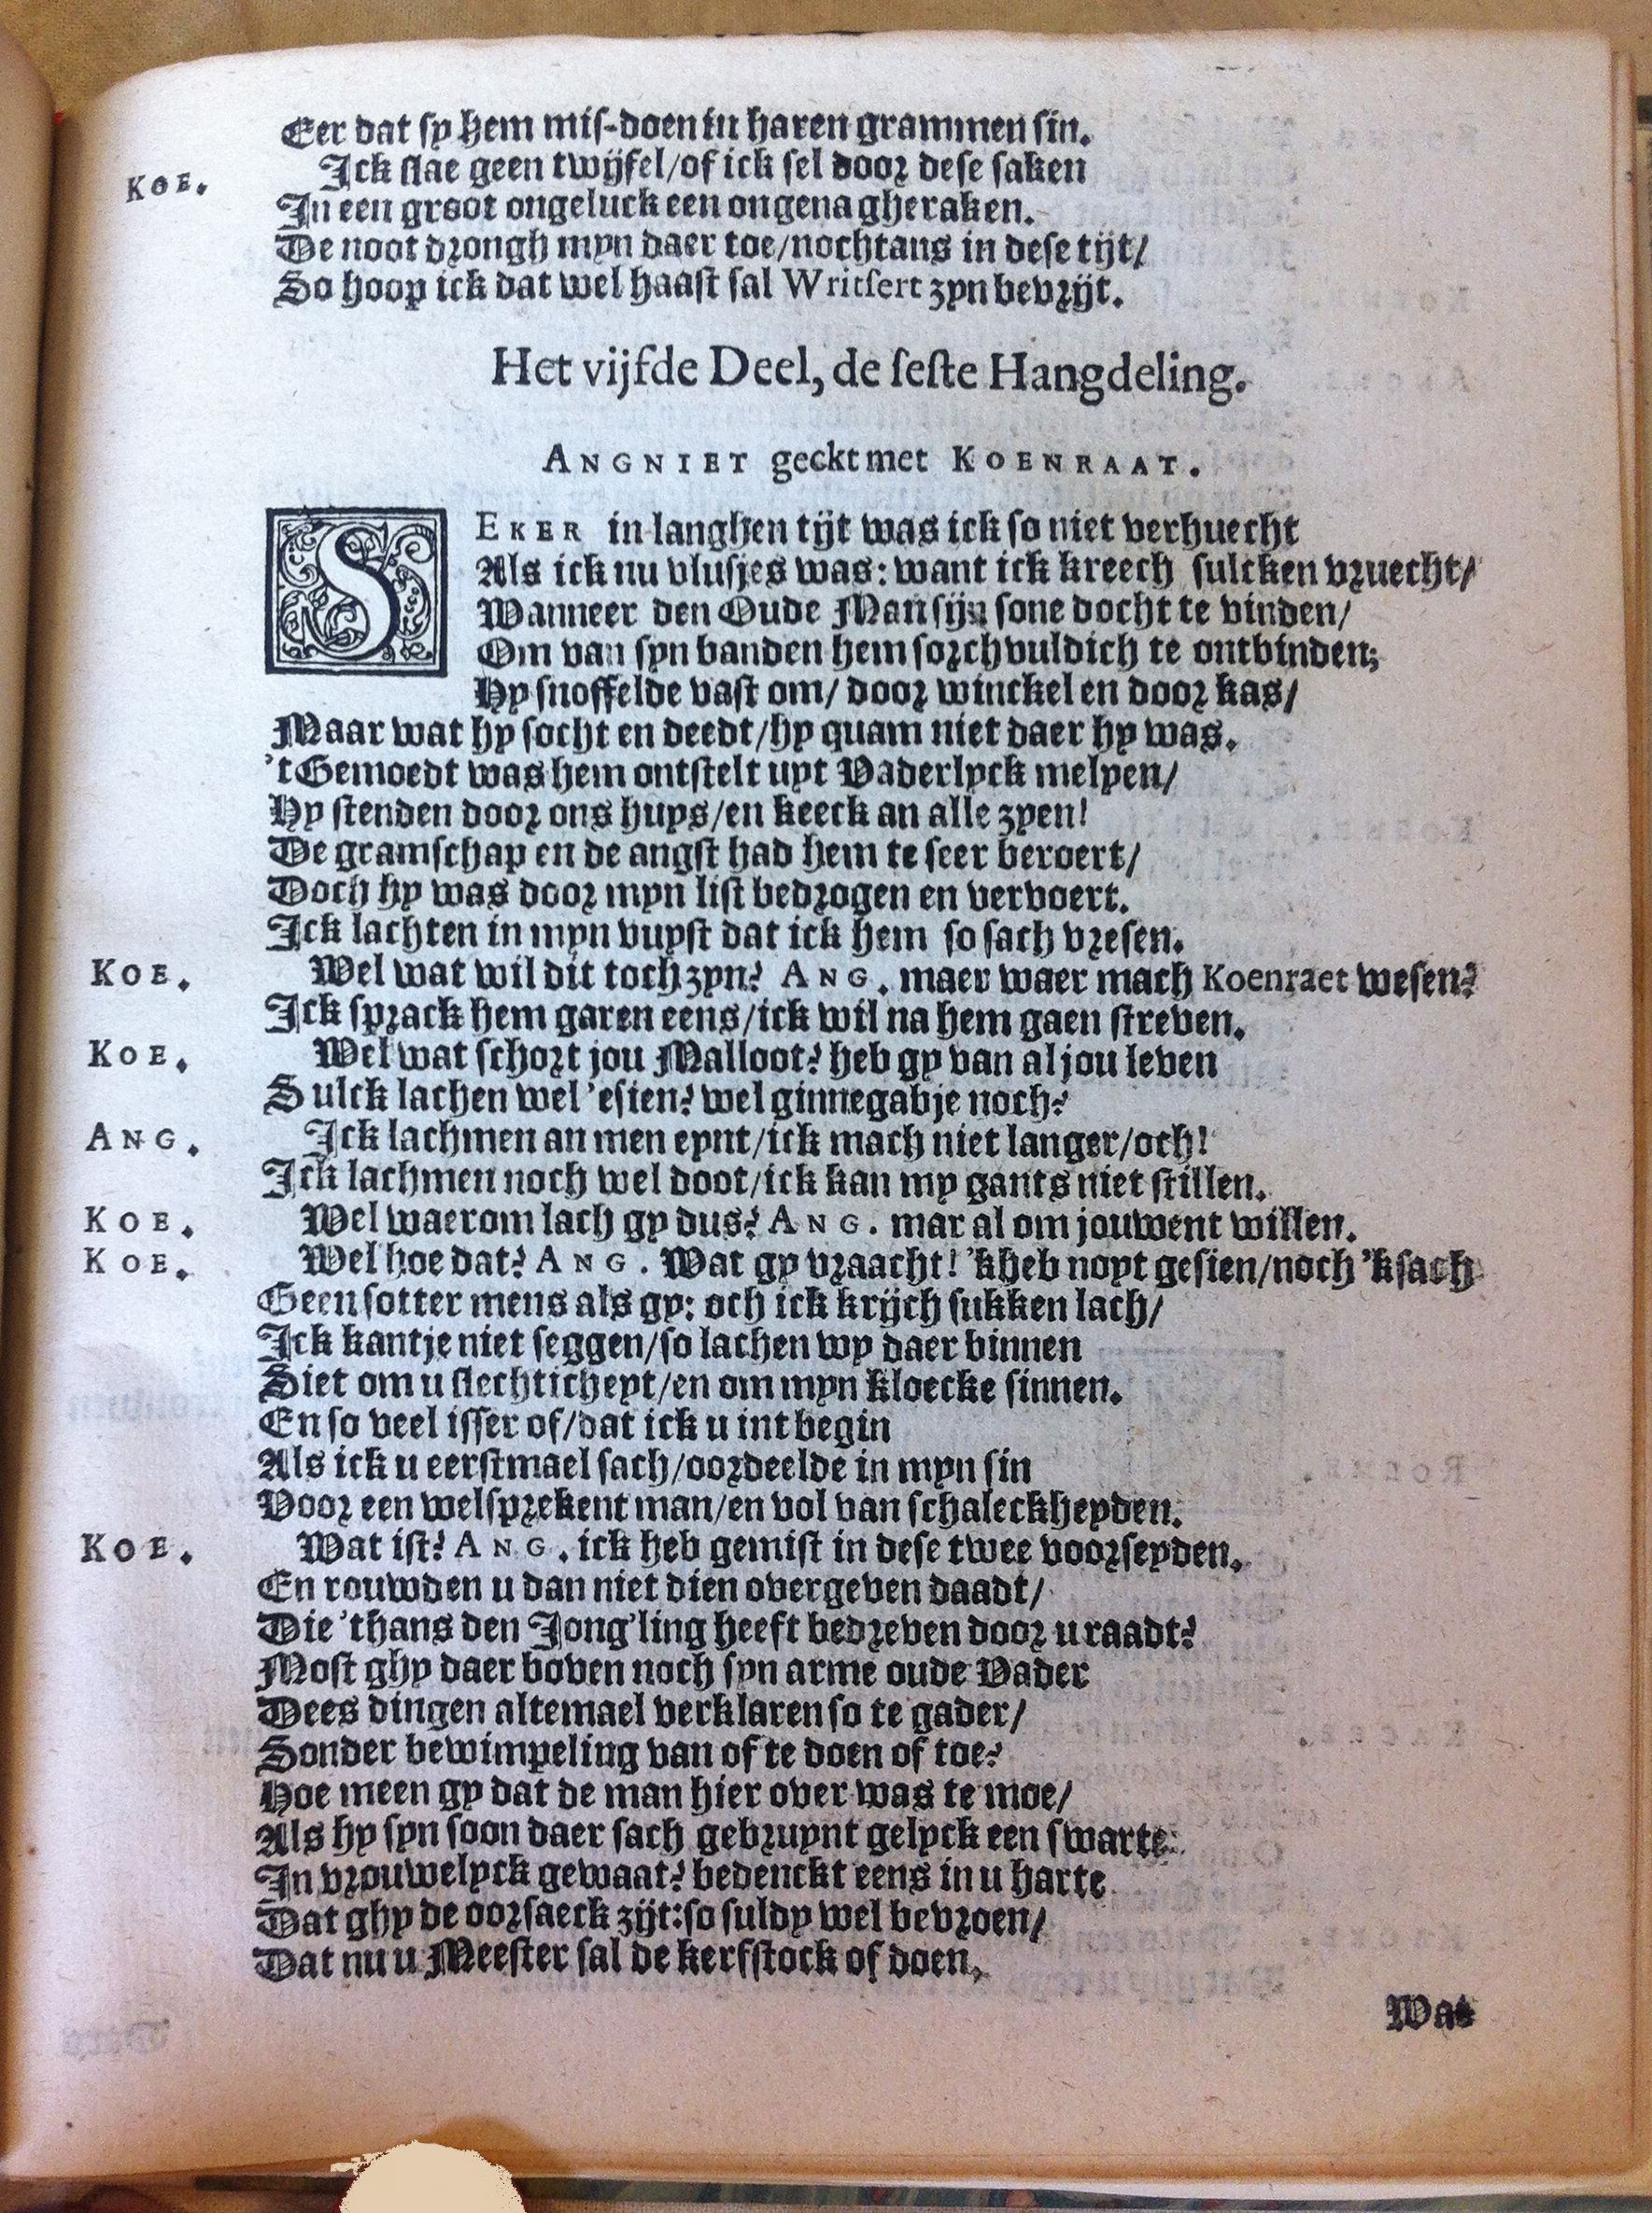 Eer dat sy hem mis-doen in haren grammen sin.
KOE. Ick slae geen twijfel/of ick sel door dese saken
In een groot ongeluck een ongena gheraken.
De noot drongh myn daer toe/nochtans in dese tijt/
So hoop ick dat wel haast sal Writsert zyn bevrijt.
Het vijfde Deel, de seste Hangdeling.
ANGNIET geckt met KOENRAAT.
SEKER in langhen tijt was ick so niet verhuecht
Als ick nu vlusjes was: want ick kreech sulcken vruecht/
Wanneer den Oude Man sijn sone docht te vinden/
Om van syn banden hem sorchvuldich te ontbinden;
Hy snoffelde vast om/ door winckel en door kas/
Maar wat hy socht en deedt/hy quam niet daer hy was.
't Gemoedt was hem ontstelt uyt Vaderlyck melyen/
Hy stenden door ons huys/en keeck an alle zyen!
De gramschap en de angst had hem te seer beroert/
Doch hy was door myn list bedrogen en vervoert.
Ick lachten in myn vuyst dat ick hem so sach vresen.
KOE. Wel wat wil dit toch zyn? ANG. maer waer mach Koenraet wesen?
Ick sprack hem garen eens/ick wil na hem gaen streven.
KOE. Wel wat schort jou Malloot? heb gy van al jou leven
Sulck lachen wel 'esien? wel ginnegabje noch?
ANG. Ick lachmen an men eynt/ick mach niet langer/och!
Ick lachmen noch wel doot/ick kan my gants niet stillen.
KOE. Wel waerom lach gy dus? ANG. mar al om jouwent willen.
KOE. Wel hoe dat? ANG. Wat gy vraacht! 'k heb noyt gesien/noch 'k sach
Geen sotter mens als gy: och ick krijch sukken lach/
Ick kantje niet seggen/so lachen wy daer binnen
Siet om u slechticheyt/en om myn kloecke sinnen.
En so veel isser of/dat ick u int begin
Als ick u eerstmael sach/oordeelde in myn sin
Voor een welsprekent man/en vol van schaleckheyden.
KOE. Wat ist? ANG. ick heb gemist in dese twee voorseyden.
En rouwden u dan niet dien overgeven daadt/
Die 'thans den Jong'ling heeft bedreven door u raadt?
Most ghy daer boven noch syn arme oude Vader
Dees dingen altemael verklaren so te gader/
Sonder bewimpeling van of te doen of toe?
Hoe meen gy dat de man hier over was te moe/
Als hy syn soon daer sach gebruynt gelyck een swarte
In vrouwelyck gewaat? bedenckt eens in u harte
Dat ghy de oorsaeck zijt: so suldy wel bevroen/
Dat nu u Meester sal de kerfstock of doen,
Wat